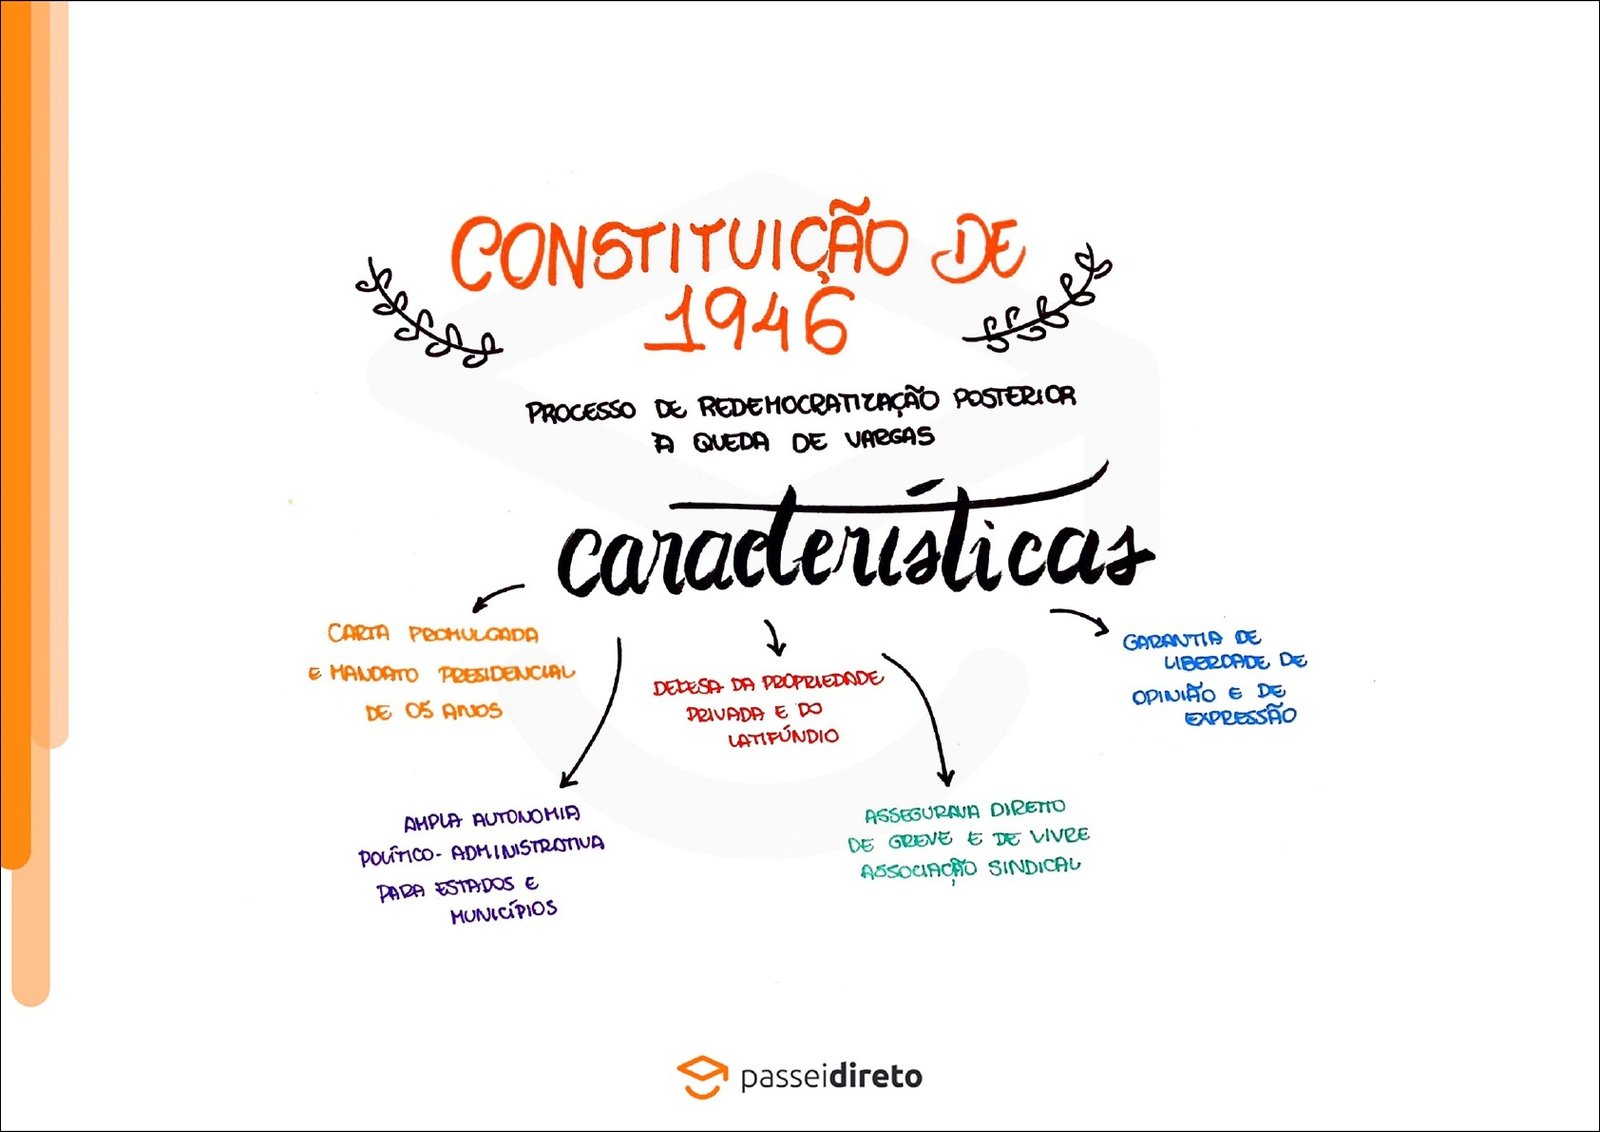 CONSTITUIÇÃO DE
1946
PROCESSO DE REDEMOCRATIZAÇÃO POSTERIOR
A QUEDA DE VARGAS
características
CARTA PROMULGADA
E MANDATO PRESIDENCIAL
DE 05 ANOS
AMPLA AUTONOMIA
POLÍTICO-ADMINISTRATIVA
PARA ESTADOS E
MUNICÍPIOS
DEFESA DA PROPRIEDADE
PRIVADA E DO
LATIFÚNDIO
ASSEGURAVA DIREITO
DE GREVE E DE LIVRE
ASSOCIAÇÃO SINDICAL
GARANTIA DE
LIBERDADE DE
OPINIÃO E DE
EXPRESSÃO
passeidireto